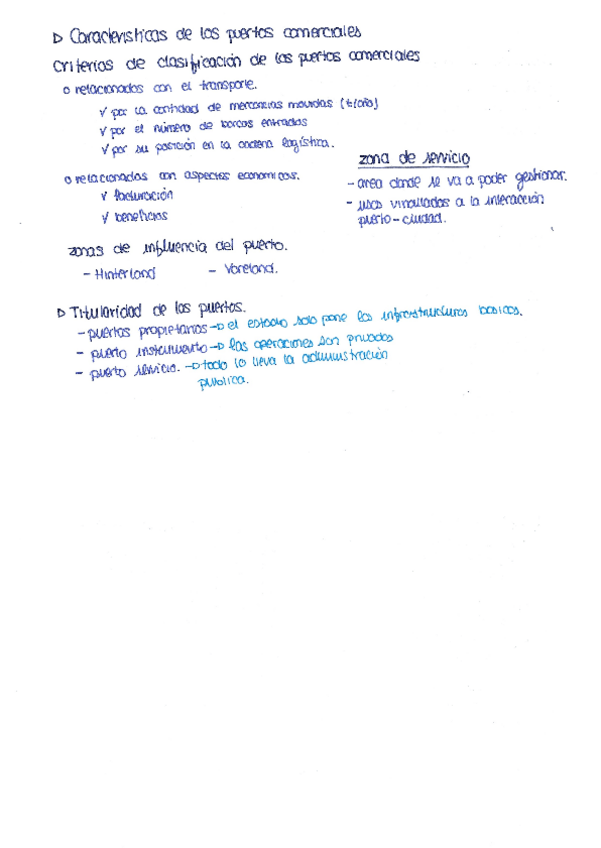 ▷ Características de los puertos comerciales
Criterios de clasificación de los puertos comerciales
o relacionados con el transporte.
✓ por la cantidad de mercancias movidas (t/año)
✓ por el número de barcos entrados
✓ por su posición en la cadena logística.
o relacionados con aspectos economicos.
✓ facturación
✓ beneficios
zona de servicio
- area donde se va a poder gestionar.
- usos vinculados a la interacción
puerto-ciudad.
zonas de influencia del puerto.
- Hinterland - Voreland.
▷ Titularidad de los puertos.
- puertos propietarios → el estado solo pone las infraestructuras basicas.
- puerto instrumento → las operaciones son privadas
- puerto servicio. → todo lo lleva la administración
publica.